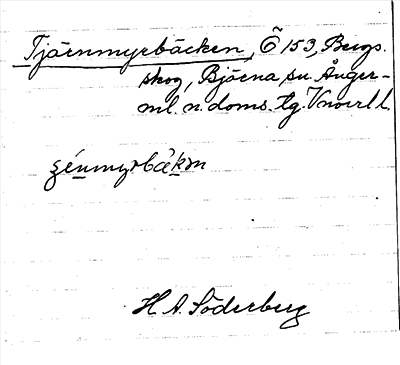 Tjärnmyrbäcken, Ö 153, Bergs-
skog, Björna sn Ånger-
ml. n. doms. tg. Vnorrl l.
H A. Söderberg